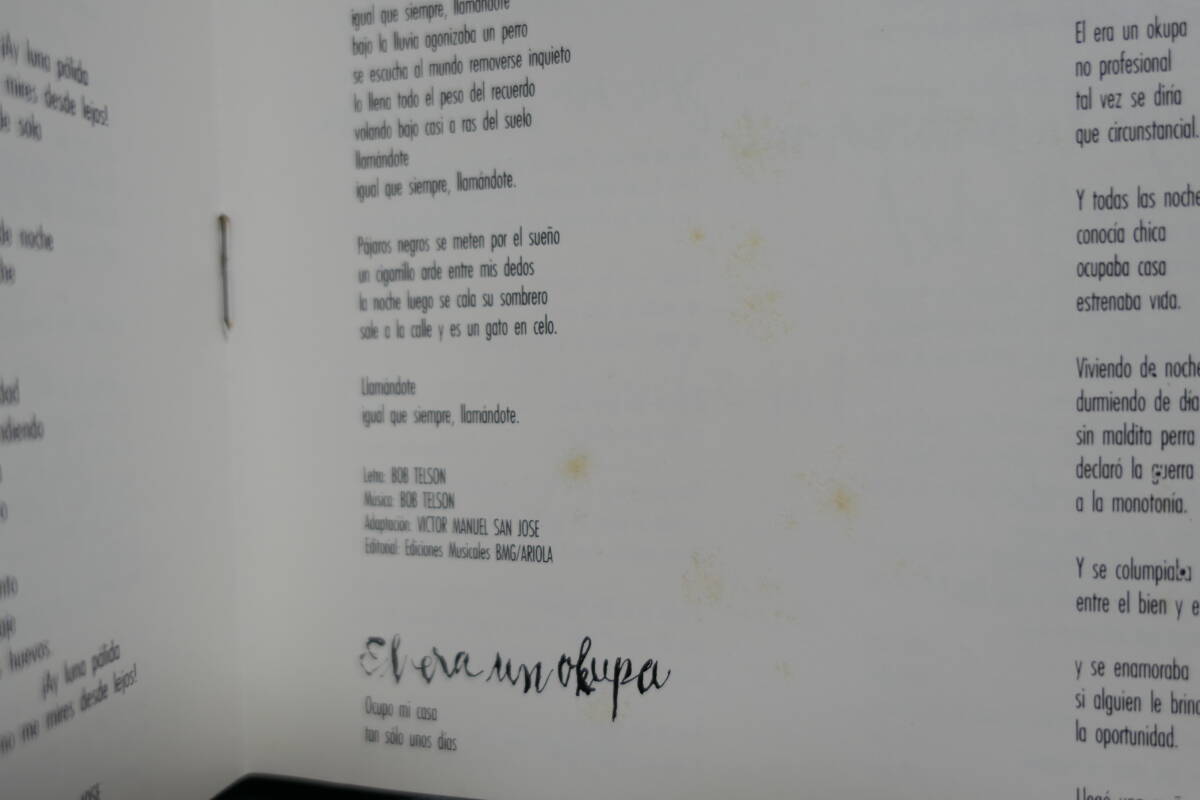 ¡Ay luna pálida
mires desde lejos!
de sólo
de noche
huevos
¡Ay luna pálida
no me mires desde lejos!
igual que siempre, llamándote
bajo la lluvia agonizaba un perro
se escucha al mundo removerse inquieto
lo llena todo el peso del recuerdo
volando bajo casi a ras del suelo
llamándote
igual que siempre, llamándote.
Pájaros negros se meten por el sueño
un cigarrillo arde entre mis dedos
la noche luego se cala su sombrero
sale a la calle y es un gato en celo.
Llamándote
igual que siempre, llamándote.
Letra: BOB TELSON
Música: BOB TELSON
Adaptación: VICTOR MANUEL SAN JOSE
Editorial: Ediciones Musicales BMG/ARIOLA
El era un okupa
Ocupo mi casa
tan sólo unos días
El era un okupa
no profesional
tal vez se diría
que circunstancial.
Y todas las noche
conocía chica
ocupaba casa
estrenaba vida.
Viviendo de noche
durmiendo de día
sin maldita perra
declaró la guerra
a la monotonía.
Y se columpiaba
entre el bien y e
y se enamoraba
si alguien le brind
la oportunidad.